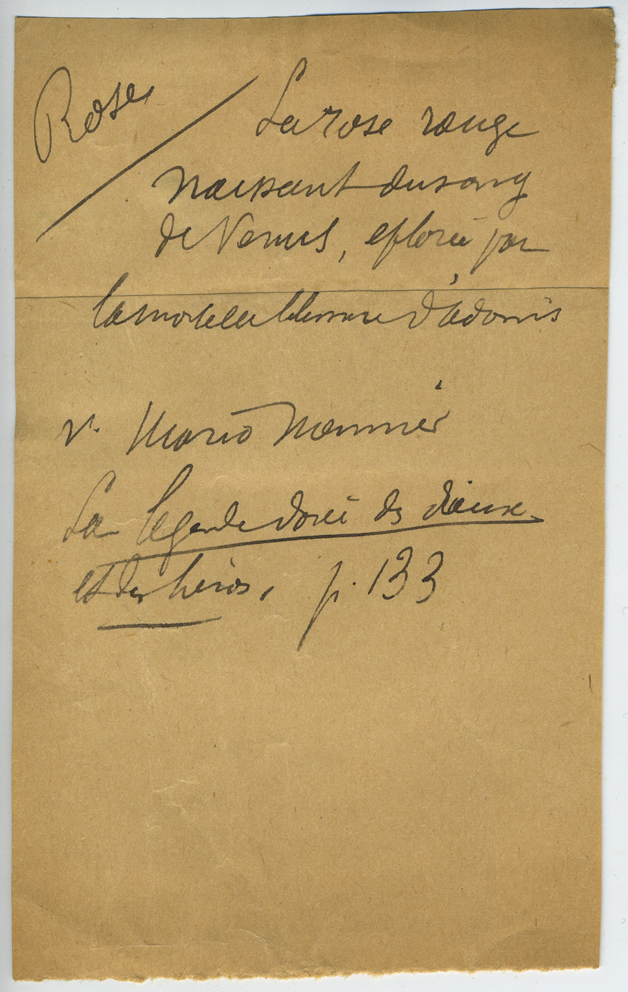 Rose
La rose rouge
naissant du sang
de Vénus, éplorée par
la mortelle blessure d'Adonis
v. Mario Meunier
La légende dorée des dieux
et des héros, p. 133